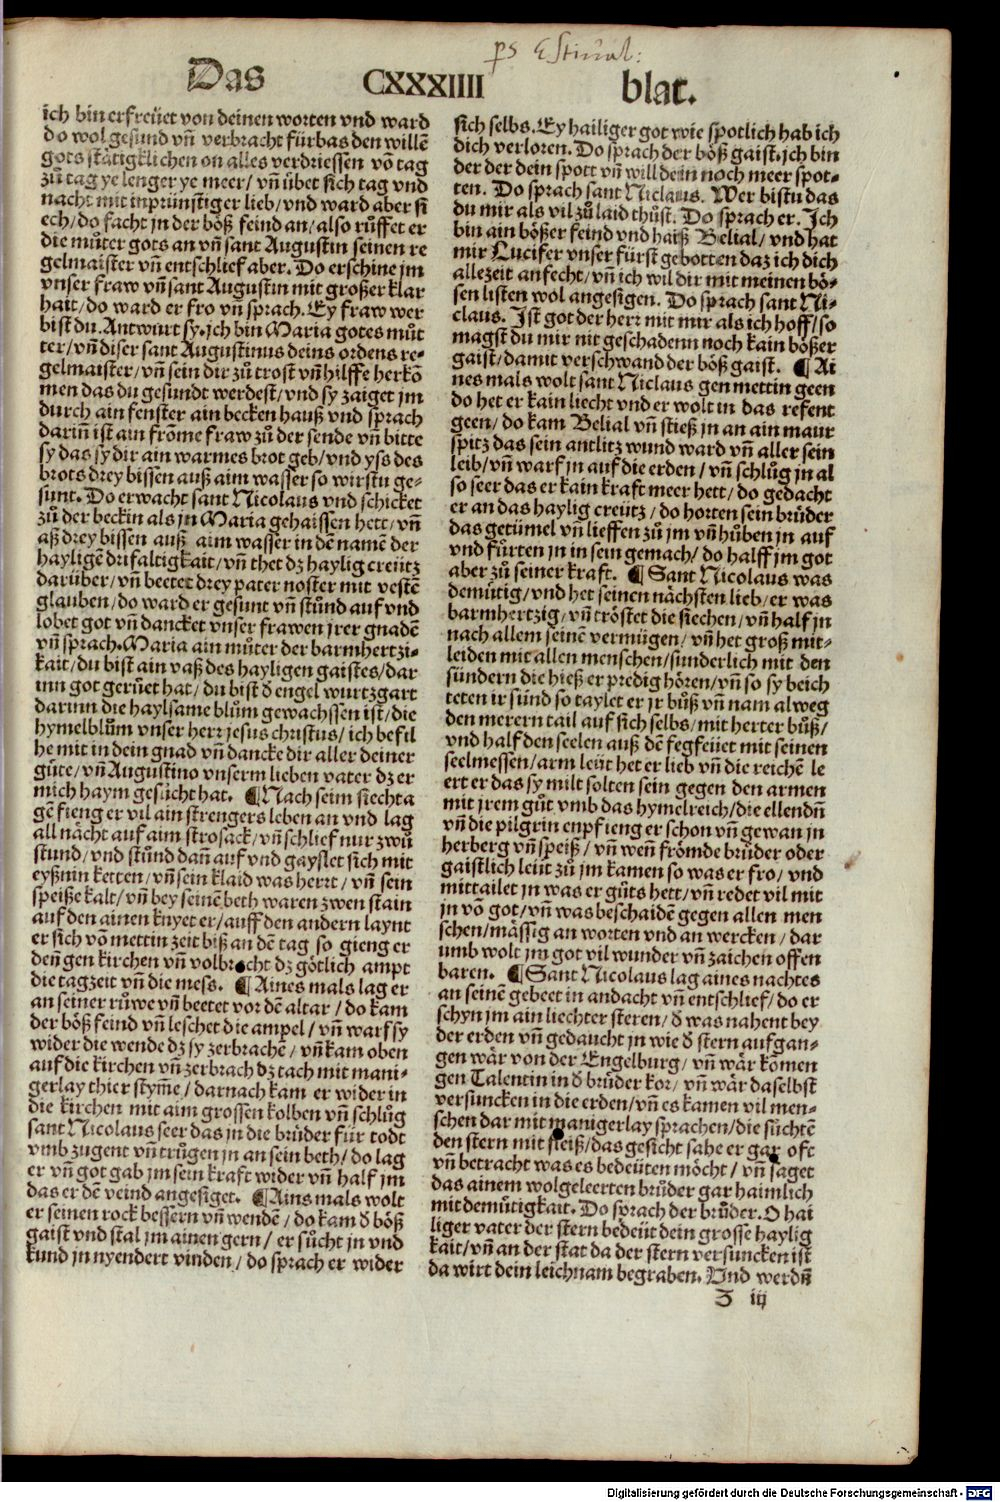 ps Estiual:
Das CXXXIIII blat.
ich bin erfreüet von deinen worten vnd ward
do wol gesund vn̄ verbracht fürbas den willē
gots stätigklichen on alles verdriessen vō tag
zů tag ye lenger ye meer/ vn̄ übet sich tag vnd
nacht mit inprünstiger lieb/ vnd ward aber si
ech/ do facht jn der böß feind an/ also růffet er
die můter gots an vn̄ sant Augustin seinen re
gelmaister vn̄ entschlief aber. Do erschine jm
vnser fraw vn̄ sant Augustin mit großer klar
hait/ do ward er fro vn̄ sprach. Ey fraw wer
bist du. Antwurt sy. jch bin Maria gotes můt
ter/ vn̄ diser sant Augustinus deins ordens re-
gelmaister/ vn̄ sein dir zů trost vn̄ hilffe herkō
men das du gesundt werdest/ vnd sy zaiget jm
durch ain fenster ain becken hauß vnd sprach
darin̄ ist ain frōme fraw zů der sende vn̄ bitte
sy das sy dir ain warmes brot geb/ vnd yss des
brots drey bissen auß aim wasser so wirstu ge-
sunt. Do erwacht sant Nicolaus vnd schicket
zů der beckin als jn Maria gehaissen hett/ vn̄
aß drey bissen auß aim wasser in dē namē der
hayligē drifaltigkait/ vn̄ thet dz haylig creütz
darüber/ vn̄ beetet drey pater noster mit vestē
glauben/ do ward er gesunt vn̄ stůnd auf vnd
lobet got vn̄ dancket vnser frawen jrer gnadē
vn̄ sprach. Maria ain můter der barmhertzi-
kait/ du bist ain vaß des hayligen gaistes/ dar
inn got gerůet hat/ du bist d̄ engel wurtzgart
darinn die haylsame blům gewachssen ist/ die
hymelblům vnser herr jesus christus/ ich befil
he mit in dein gnad vn̄ dancke dir aller deiner
güte/ vn̄ Augustino vnserm lieben vater dz er
mich haym gesůcht hat. ¶ Nach seim siechta
gē fieng er vil ain strengers leben an vnd lag
all nächt auf aim strosack/ vn̄ schlief nur zwů
stund/ vnd stůnd dan̄ auf vnd gayslet sich mit
eyßnin ketten/ vn̄ sein klaid was herrt/ vn̄ sein
speiße kalt/ vn̄ bey seinē beth waren zwen stain
auf den ainen knyet er/ auff den andern laynt
er sich vō mettin zeit biß an dē tag so gieng er
den̄ gen kirchen vn̄ volbracht dz götlich ampt
die tagzeit vn̄ die mess. ¶ Aines mals lag er
an seiner růwe vn̄ beetet vor dē altar/ do kam
der böß feind vn̄ leschet die ampel/ vn̄ warf sy
wider die wende dz sy zerbrachē/ vn̄ kam oben
auf die kirchen vn̄ zerbrach dz tach mit mani-
gerlay thier stym̄e/ darnach kam er wider in
die kirchen mit aim grossen kolben vn̄ schlůg
sant Nicolaus seer das jn die brüder für todt
vmb zugent vn̄ trůgen jn an sein beth/ do lag
er vn̄ got gab jm sein kraft wider vn̄ half jm
das er dē veind angesiget. ¶ Ains mals wolt
er seinen rock bessern vn̄ wendē/ do kam d̄ böß
gaist vnd stal jm ainen gern/ er sůcht jn vnd
kund jn nyendert vinden/ do sprach er wider
sich selbs. Ey hailiger got wie spotlich hab ich
dich verloren. Do sprach der böß gaist. jch bin
der der dein spott vn̄ will dein noch meer spot-
ten. Do sprach sant Niclaus. Wer bistu das
du mir als vil zů laid thůst. Do sprach er. Ich
bin ain bößer feind vnd haiß Belial/ vnd hat
mir Lucifer vnser fürst gebotten daz ich dich
allezeit anfecht/ vn̄ ich wil dir mit meinen bö-
sen listen wol angesigen. Do sprach sant Ni-
claus. Ist got der herr mit mir als ich hoff/ so
magst du mir nit geschadenn noch kain bößer
gaist/ damit verschwand der böß gaist. ¶ Ai
nes mals wolt sant Niclaus gen mettin geen
do het er kain liecht vnd er wolt in das refent
geen/ do kam Belial vn̄ stieß jn an ain maur
spitz das sein antlitz wund ward vn̄ aller sein
leib/ vn̄ warf jn auf die erden/ vn̄ schlůg jn al
so seer das er kain kraft meer hett/ do gedacht
er an das haylig creütz/ do horten sein brüder
das getümel vn̄ lieffen zů jm vn̄ hůben jn auf
vnd fůrten jn in sein gemach/ do halff jm got
aber zů seiner kraft. ¶ Sant Nicolaus was
demütig/ vnd het seinen nächsten lieb/ er was
barmhertzig/ vn̄ tröstet die siechen/ vn̄ half jn
nach allem seinē vermügen/ vn̄ het groß mit-
leiden mit allen menschen/ sunderlich mit den
sündern die hieß er predig hören/ vn̄ so sy beich
teten ir sünd so taylet er jr bůß vn̄ nam alweg
den merern tail auf sich selbs/ mit herter bůß/
vnd half den seelen auß dē fegfeüet mit seinen
seelmessen/ arm leüt het er lieb vn̄ die reichē le
ert er das sy milt solten sein gegen den armen
mit jrem gůt vmb das hymelreich/ die ellendn̄
vn̄ die pilgrin enpfieng er schon vn̄ gewan jn
herberg vn̄ speiß/ vn̄ wen̄ frömde brüder oder
gaistlich leüt zů jm kamen so was er fro/ vnd
mittailet jn was er gůts hett/ vn̄ redet vil mit
jn vō got/ vn̄ was beschaidē gegen allen men
schen/ mässig an worten vnd an wercken/ dar
umb wolt jm got vil wunder vn̄ zaichen offen
baren. ¶ Sant Nicolaus lag aines nachtes
an seinē gebeet in andacht vn̄ entschlief/ do er
schyn jm ain liechter steren/ d̄ was nahent bey
der erden vn̄ gedaucht jn wie d̄ stern aufgan-
gen wär von der Engelburg/ vn̄ wär kōmen
gen Talentin in d̄ brüder kor/ vn̄ wär daselbst
versuncken in die erden/ vn̄ es kamen vil men-
schen dar mit manigerlay sprachen/ die sůchtē
den stern mit fleiß/ das gesicht sahe er gar oft
vn̄ betracht was es bedeüten möcht/ vn̄ saget
das ainem wolgeleerten brüder gar haimlich
mit demütigkait. Do sprach der brüder. O hai
liger vater der stern bedeüt dein grosse haylig
kait/ vn̄ an der stat da der stern versuncken ist
da wirt dein leichnam begraben. Vnd werdn̄
Z iij
Digitalisierung gefördert durch die Deutsche Forschungsgemeinschaft - DFG